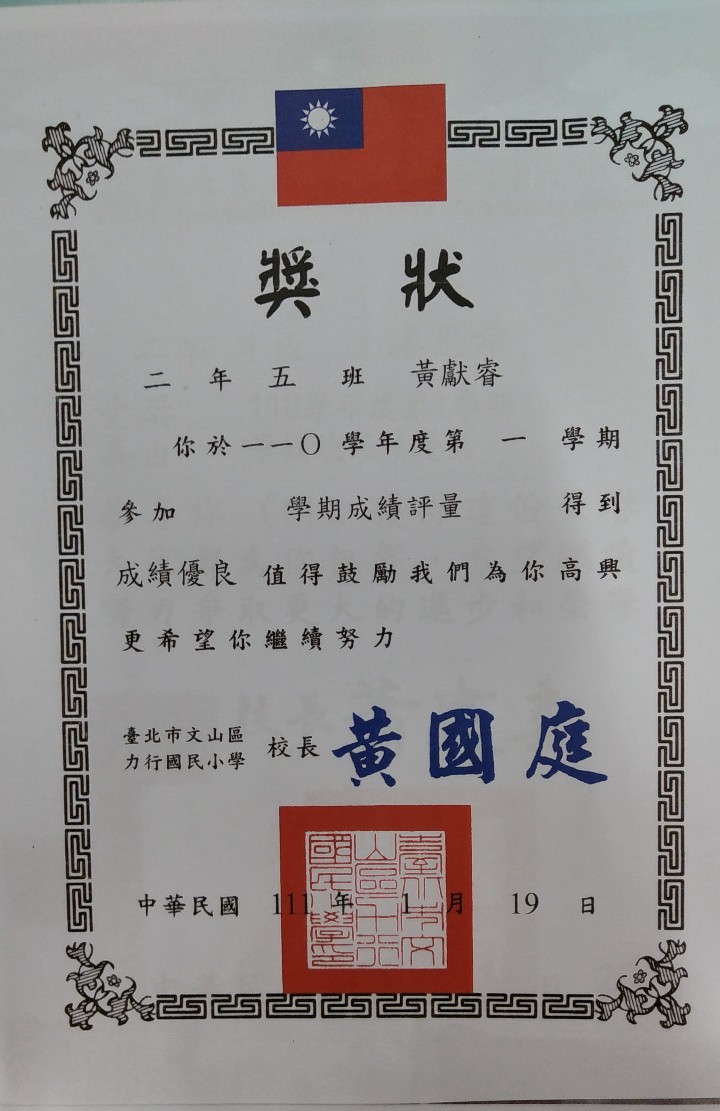 獎狀
二年五班 黃獻睿
你於一一〇學年度第一學期
參加 學期成績評量 得到
成績優良 值得鼓勵我們為你高興
更希望你繼續努力
臺北市文山區
力行國民小學
校長 黃國庭
臺北市文
山區力行
國民小學印
中華民國 111 年 1 月 19 日